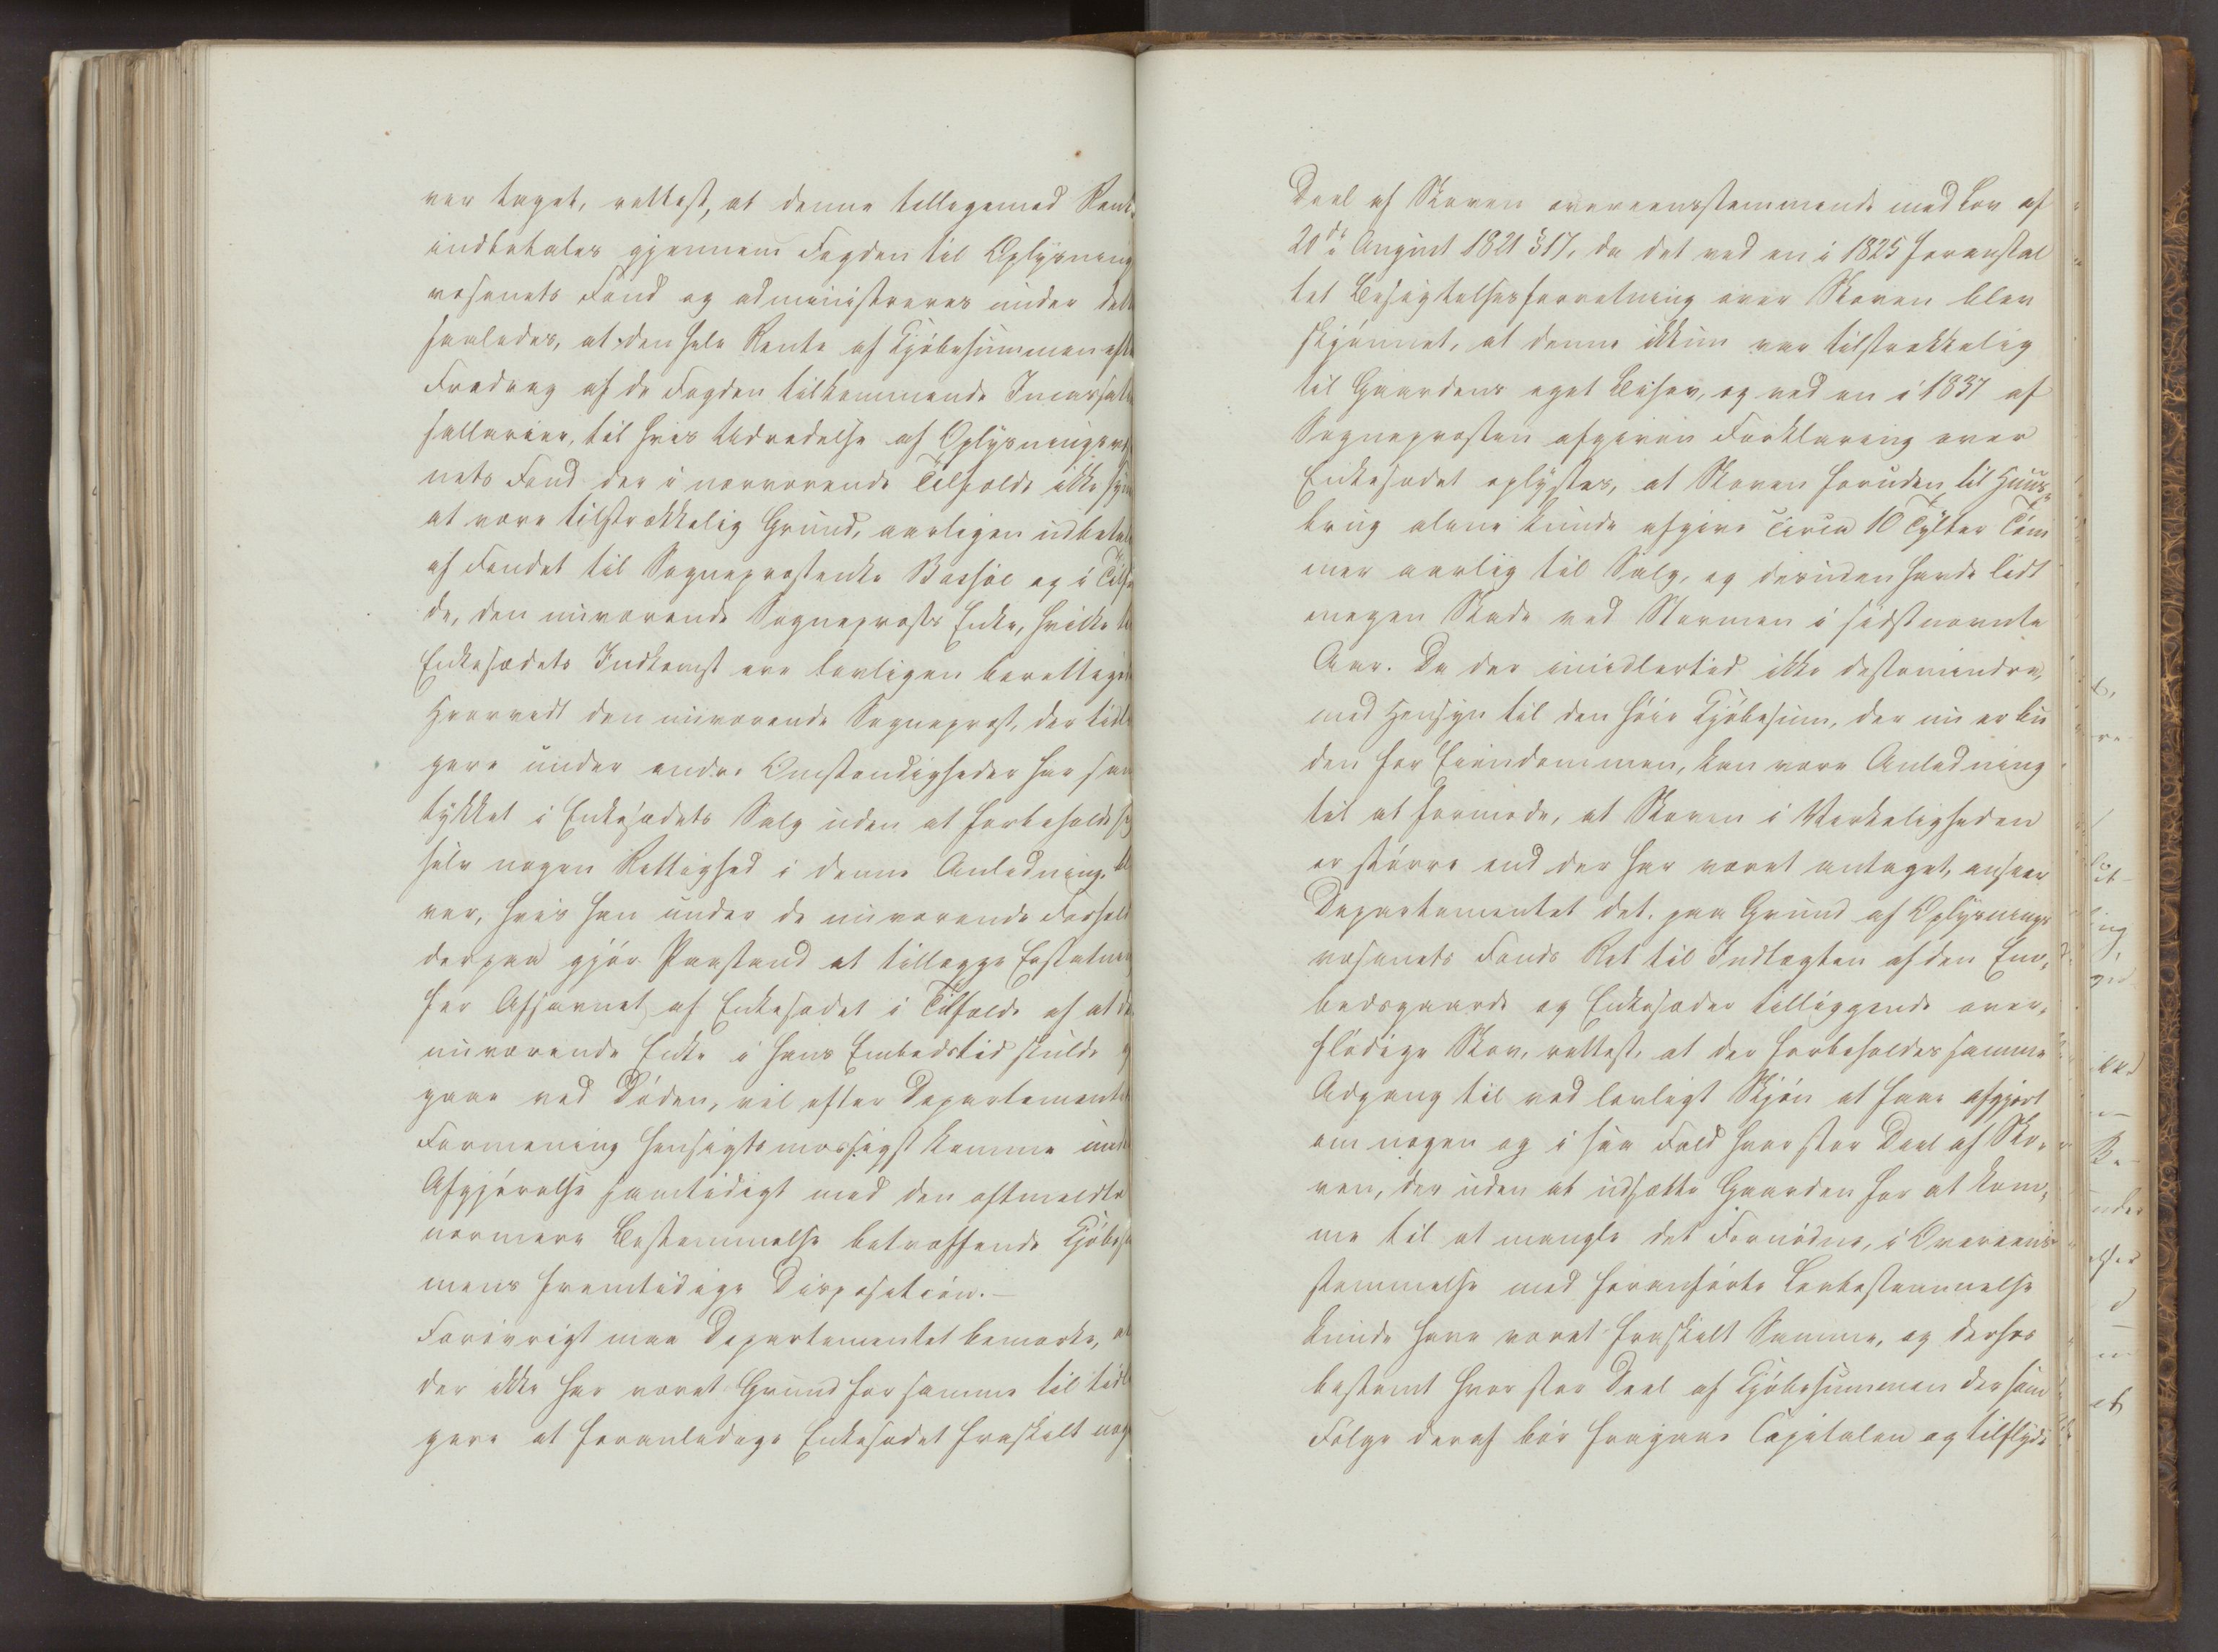 ver taget, rettest, at denne tilligemed Rent
indbetales gjennem Fogden til Oplysning
væsenets Fond og administreres under det
saaledes, at den hele Rente af Kjøbesummen efte
Fradrag af de Fogden tilkommende Incassati
sallarier, til hvis Udredelse af Oplysningsvæ
nets Fond der i nærværende Tilfælde ikke syn
at være tilstrækkelig Grund, aarligen udbetal
af Fondet til Sogneprestenke Bassøe og i Tilfæ
de, den nuværende Sogneprests Enke, hvilke til
Enkesædets Indkomst ere lovligen berettiged
Hvorvidt den nuværende Sogneprest, der tidli
gere under andre Omstændigheder har sam
tykket i Enkesædets Salg uden at forbeholde sig
selv nogen Rettighed i denne Anledning, bl
ver, hvis han under de nuværende Forhold
derpaa gjør Paastand at tillægge Erstatning
for Afsavnet af Enkesædet i Tilfælde af at de
nuværende Enke i hans Embedstid skulde
gaae ved Døden, vil efter Departementet
Formening hensigtsmæssigst komme un
Afgjørelse samtidigt med den oftmeldte
nærmere Bestemmelse betræffende Kjøbesu
mens fremtidige Disposition.—
Forøvrigt maa Departementet bemærke, at
der ikke har været Grund for samme til tidli
gere at foranledige Enkesædet fraskilt nog
Deel af Skoven overeensstemmende med Lov af
20de August 1821 § 17, da det ved en i 1825 foranstal
tet Besigtelsesforretning over Skoven blev
skjønnet, at denne ikkun var tilstrækkelig
til Gaardens eget Behov, og ved en i 1837 af
Sognepresten afgiven Forklaring over
Enkesædet oplystes, at Skoven foruden til Huus-
brug alene kunde afgive circa 10 Tylter Tøm
mer aarlig til Salg, og desuden havde lidt
megen Skade ved Stormen i sidstnævnte
Aar. Da der imidlertid ikke destomindre,
med Hensyn til den høie Kjøbesum, der nu er bu
den for Eiendommen, kan være Anledning
til at formode, at Skoven i Virkeligheden
er større end der har været antaget, anseer
Departementet det, paa Grund af Oplysnings
væsenets Fonds Ret til Indtægten af den Em-
bedsgaarde og Enkesæder tilliggende over-
flødige Skov, rettest, at der forbeholdes samme
Adgang til ved lovligt Skjøn at faae afgjort
om nogen og i saa Fald hvor stor Deel af Sko-
ven, der uden at udsætte Gaarden for at kom-
me til at mangle det Fornødne, i Overeens
stemmelse med foranførte Lovbestemmelse
kunde have været fraskilt Samme, og derhos
bestemt hvor stor Deel af Kjøbesummen der som
Følge deraf bør fragaae Capitalen og tilflyde